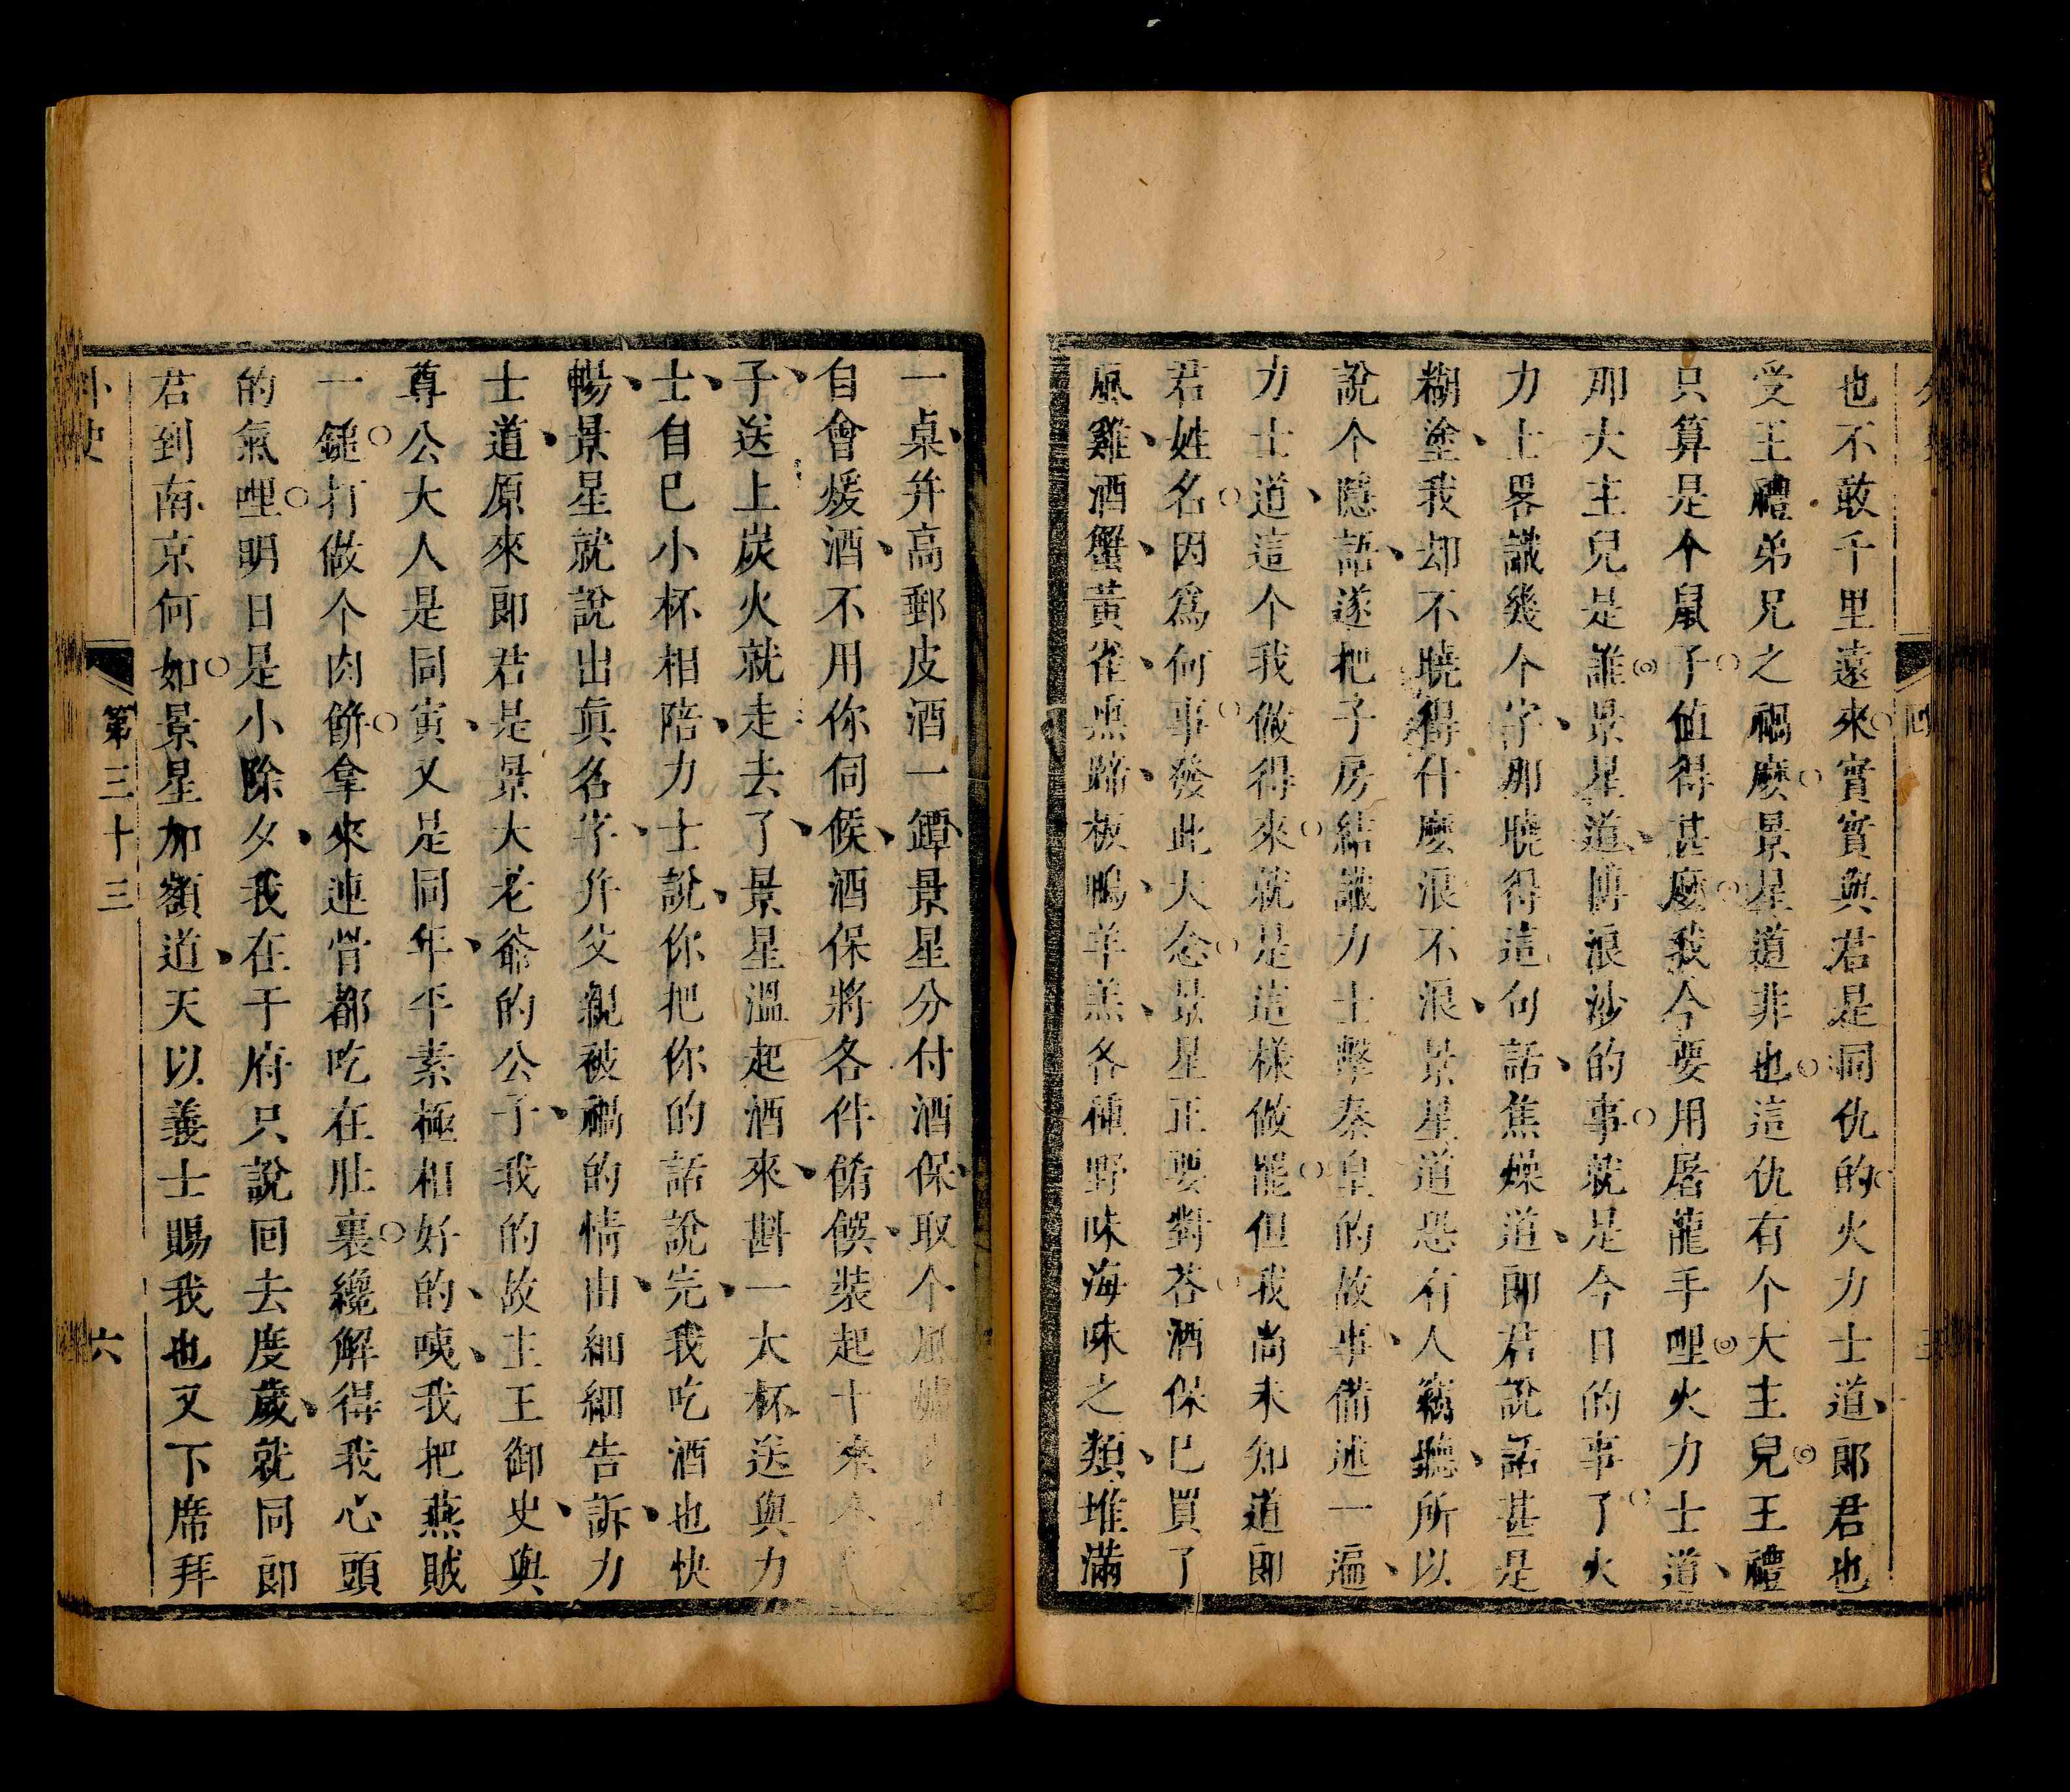 也不敢千里遠來實實與君是同仇的火力士道郎君也
受王禮弟兄之禍麼景星道非也這仇有个大主兒王禮
只算是个鼠子値得甚麼我今要用屠龍手哩火力士道
那大主兒是誰景星道博浪沙的事就是今日的事了火
力士畧識幾个字那曉得這句話焦燥道郎君說話甚是
糊塗我却不曉得什麼浪不浪景星道恐有人竊聽所以
說个隱語遂把子房結識力士擊秦皇的故事備述一遍
力士道這个我做得來就是這樣做罷但我尚未知道郎
君姓名因爲何事發此大念景星正要對荅酒保巳買了
風雞酒蟹黃雀熏蹄板鴨羊羔各種野味海味之類堆滿
一桌并高郵皮酒一罈景星分付酒保取个風爐
自會煖酒不用你伺候酒保將各件餚饌裝起十來
子送上炭火就走去了景星溫起酒來斟一大杯送與力
士自巳小杯相陪力士說你把你的話說完我吃酒也快
暢景星就說出眞名字并父親被禍的情由細細告訴力
士道原來郎君是景大老爺的公子我的故主王御史與
尊公大人是同寅又是同年平素極相好的咦我把燕賊
一鎚打做个肉餅拿來連骨都吃在肚裏纔解得我心頭
的氣哩明日是小除夕我在于府只說回去度歲就同郎
君到南京何如景星加額道天以義士賜我也又下席拜
外史
第三十三
六